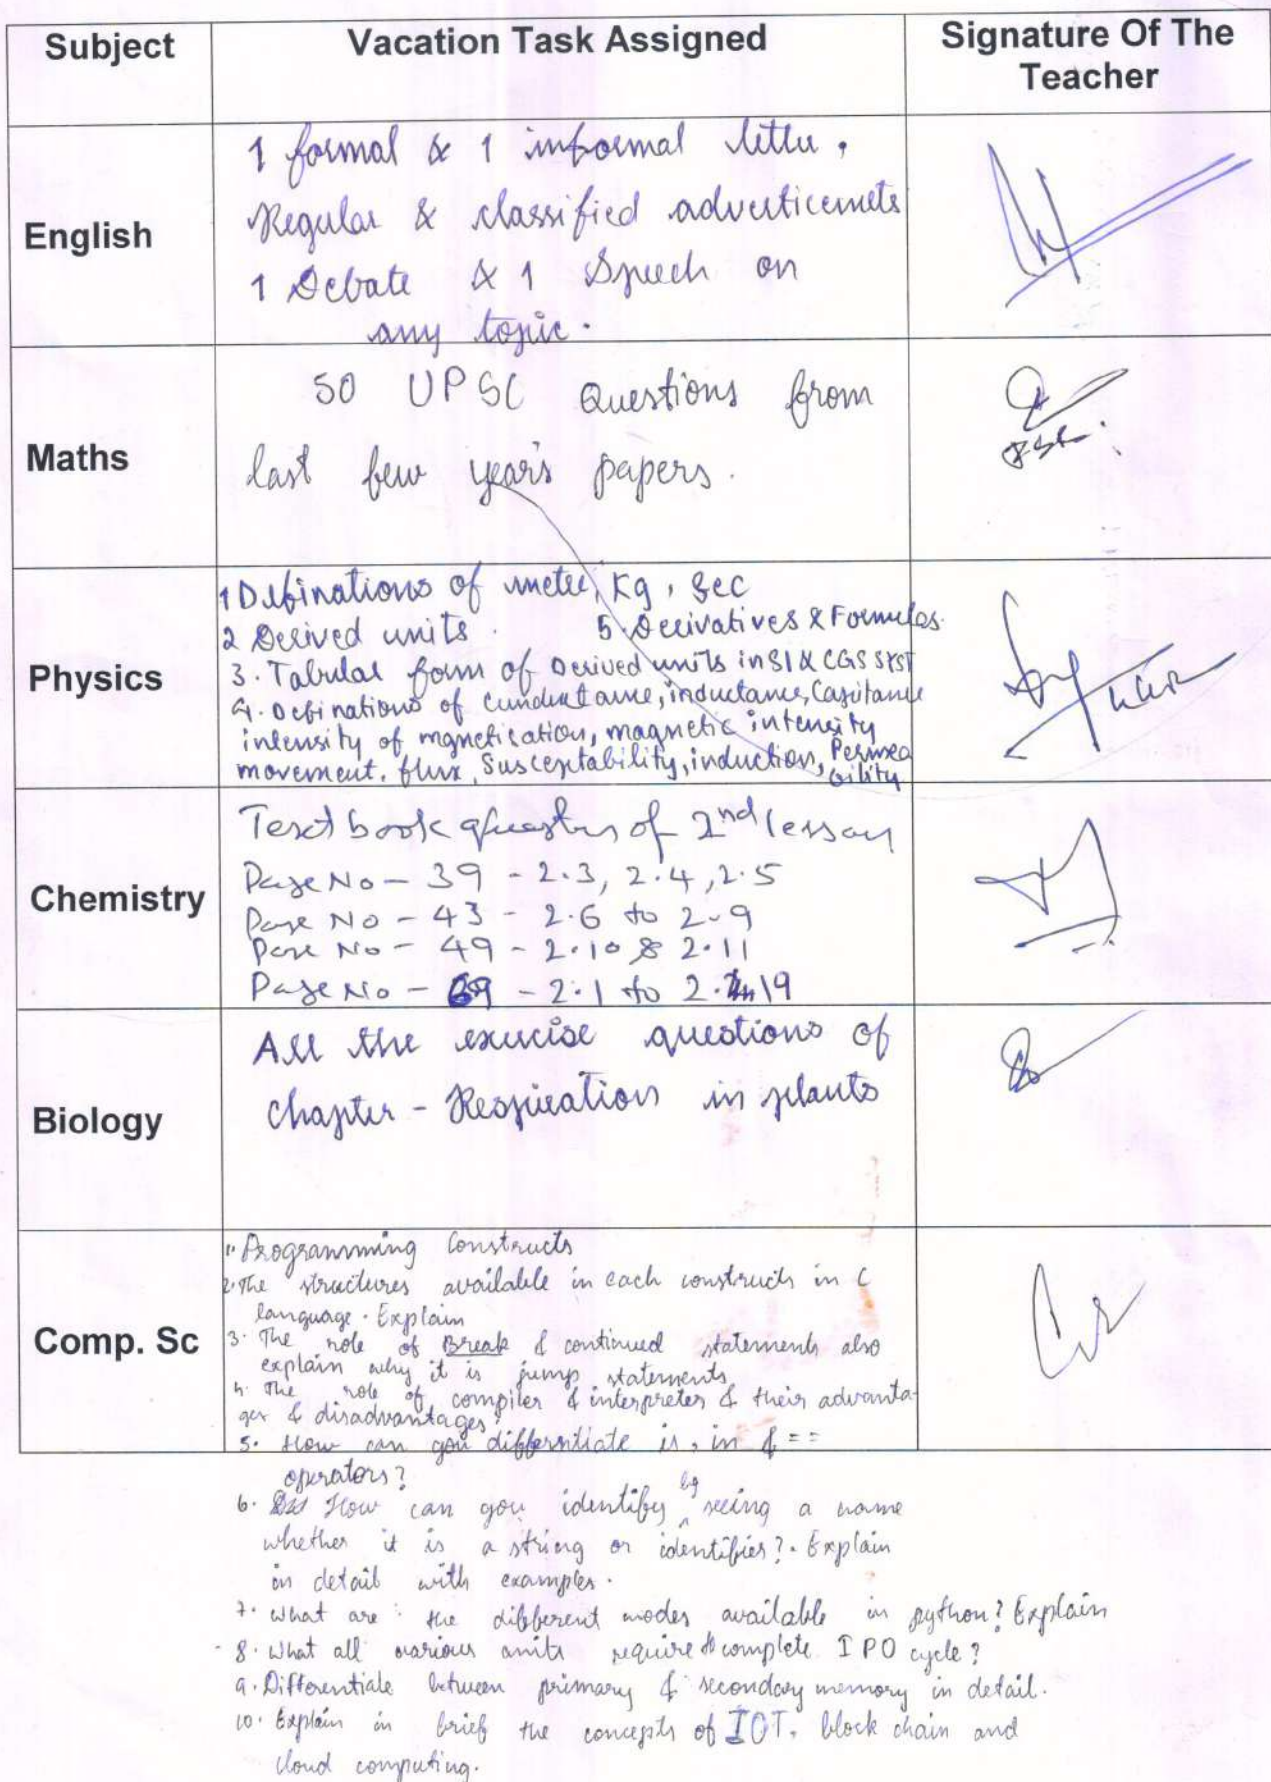 Subject Vacation Task Assigned Signature Of The
Teacher
English
1 formal & 1 informal letter,
Regular & classified adverticemets
1 Debate & 1 Speech on
any topic.
Maths
50 UPSC Questions from
last few year's papers.
Physics
1 Definations of meter, Kg, Sec
2 Derived units. 5. Derivatives & Formulas.
3. Tabular form of Derived units in SI & CGS SYST
4. Definations of Cunductance, inductance, Capitance
intensity of mgnetication, magnetic intensity
movement, flux, Susceptability, induction, Permea
bility
Chemistry
Text book questns of 2nd lesson
Page No - 39 - 2.3, 2.4, 2.5
Page No - 43 - 2.6 to 2.9
Page No - 49 - 2.10 & 2.11
Page No - 69 - 2.1 to 2.19
Biology
All the exercise questions of
chapter - Respiration in plants
Comp. Sc
1. Programming Constructs
2. The structures available in each constructs in C
language. Explain
3. The role of Break & continued statements also
explain why it is jump statements
4. The role of compiler & interpreter & their advanta-
ges & disadvantages?
5. How can you differntiate is, in & ==
operators?
6. How can you identify by seeing a name
whether it is a string or identifier?. Explain
in detail with examples.
7. What are the different modes available in python? Explain
8. What all various units require to complete IPO cycle?
9. Differentiate between primary & secondary memory in detail.
10. Explain in brief the concepts of IOT, block chain and
cloud computing.